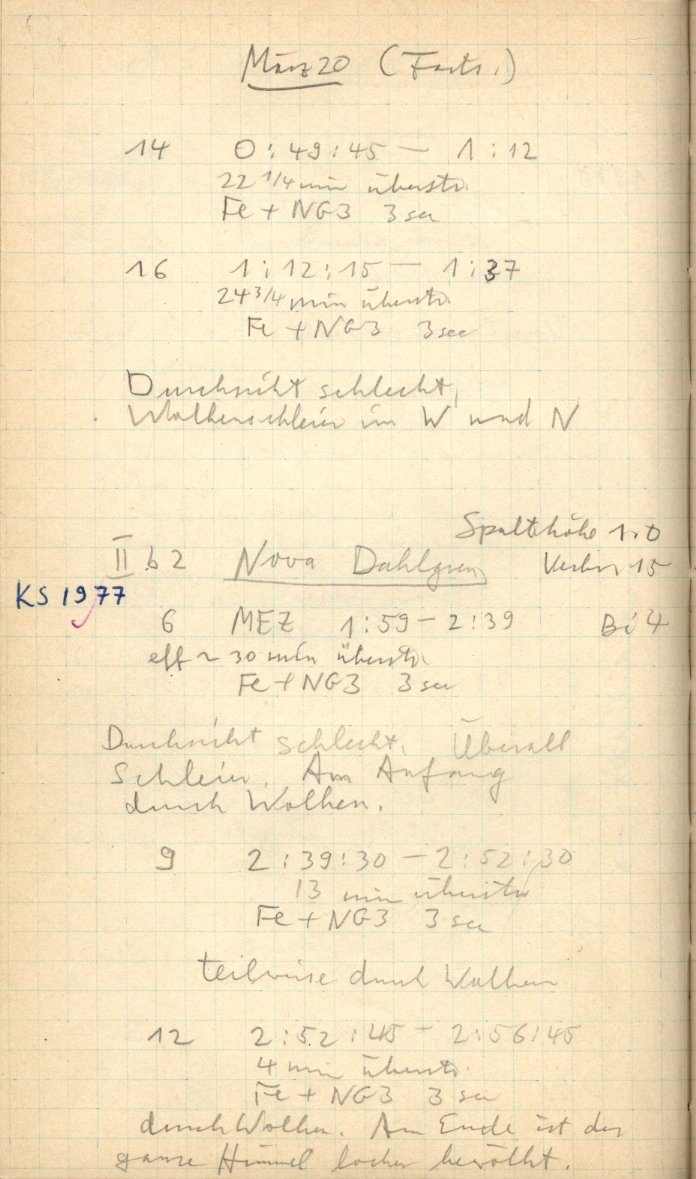 März 20 (Forts.)
14 0:49:45 — 1:12
22 1/4 min überstr.
Fe + NG3 3 sec
16 1:12:15 — 1:37
24 3/4 min überstr.
Fe + NG3 3 sec
Durchsicht schlecht,
Wolkenschleier im W und N
Spalthöhe 1.0
II b 2 Nova Dahlgren 15
KS 1977
6 MEZ 1:59 — 2:39 Bi 4
eff ~ 30 min überstr.
Fe + NG3 3 sec
Durchsicht schlecht. Überall
Schleier. Am Anfang
durch Wolken.
9 2:39:30 — 2:52:30
13 min überstr
Fe + NG3 3 sec
teilweise durch Wolken
12 2:52:45 — 2:56:45
4 min überstr.
Fe + NG3 3 sec
durch Wolken. Am Ende ist der
ganze Himmel locker bewölkt.